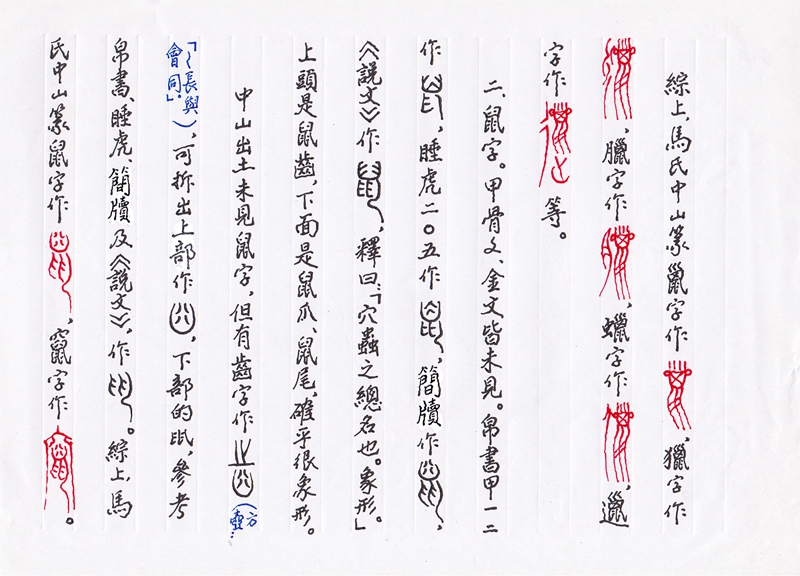 綜上，馬氏中山篆巤字作，獵字作
，臘字作，蠟字作，邋
字作等。
二、鼠字。甲骨文、金文皆未見。帛書甲一二
作，睡虎二〇五作，簡牘作，
《說文》作，釋曰：「穴蟲之總名也。象形。」
上頭是鼠齒，下面是鼠爪、鼠尾，確乎很象形。
中山出土未見鼠字，但有齒字作（方壺：
「長與會同」），可拆出上部作，下部的，參考
帛書、睡虎、簡牘及《說文》，作。綜上，馬
氏中山篆鼠字作，竄字作。